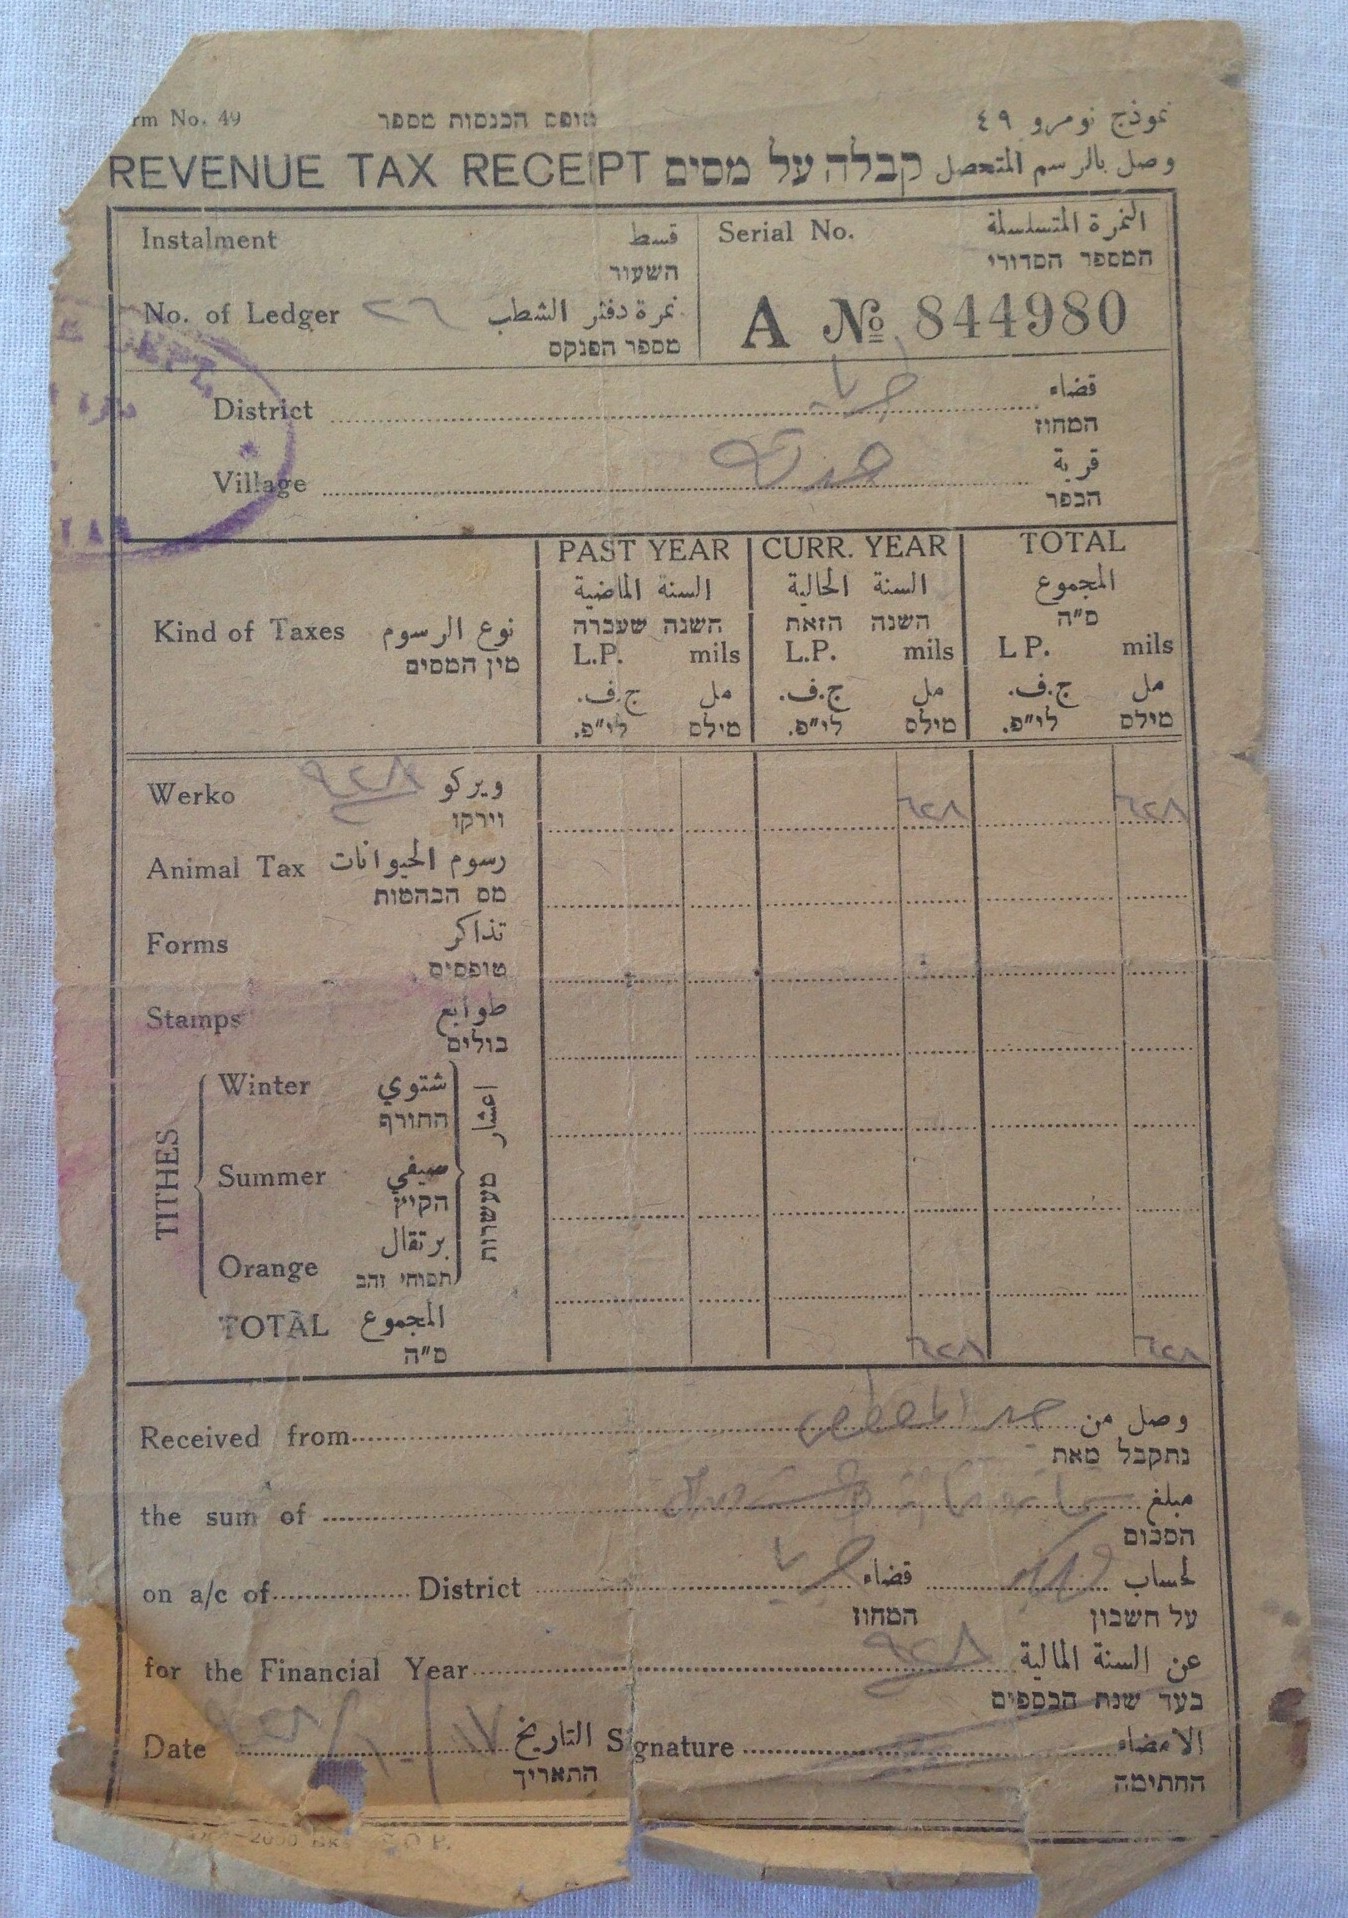 rm No. 49 טופס הכנסות מספר نموذج نومرو ٤٩
REVENUE TAX RECEIPT קבלה על מסים وصل بالرسم المتحصل
Instalment قسط
השעור
No. of Ledger ٢٦ نمرة دفتر الشطب
מספר הפנקס
Serial No. النمرة المتسلسلة
המספר הסדורי
A № 844980
District قضاء
המחוז
Village قرية
הכפר
DEPT.
Kind of Taxes نوع الرسوم
מין המסים
PAST YEAR CURR. YEAR TOTAL
السنة الماضية السنة الحالية المجموع
השנה שעברה השנה הזאת ס"ה
L.P. mils L.P. mils L P. mils
ج.ف. مل ج.ف. مل ج.ف. مل
לי"פ. מילס לי"פ. מילס לי"פ. מילס
Werko ٩٢٨ ويركو
וירקו
Animal Tax رسوم الحيوانات
מס הבהמות
Forms تذاكر
טופסים
Stamps طوابع
בולים
TITHES اعشار מעשרות
Winter شتوي
החורף
Summer صيفي
הקיץ
Orange برتقال
תפוחי זהב
TOTAL المجموع
ס"ה
Received from وصل من
נתקבל מאת
the sum of مبلغ
הסכום
on a/c of District قضاء لحساب
המחוז על חשבון
for the Financial Year ٩٢٨ عن السنة المالية
בעד שנת הכספים
Date التاريخ Signature الامضاء
התאריך החתימה